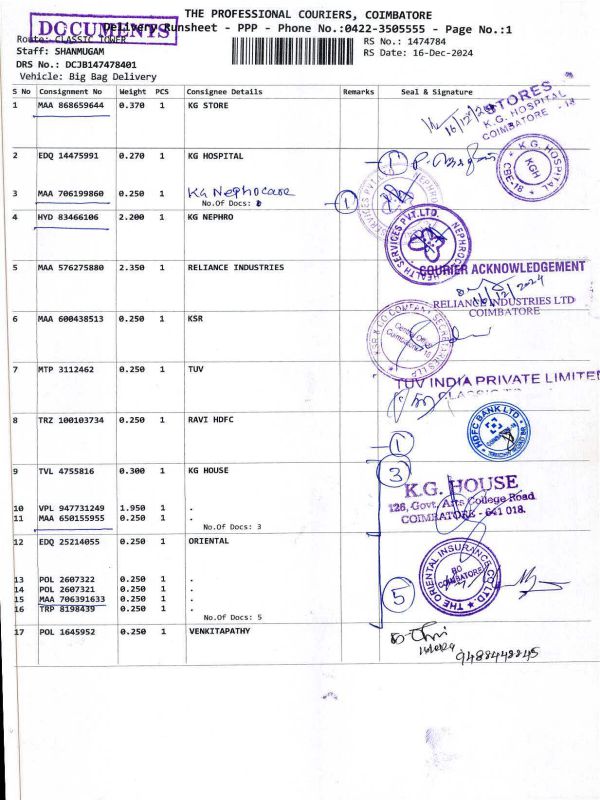 THE PROFESSIONAL COURIERS, COIMBATORE
DOCUMENTS
Delivery Runsheet - PPP - Phone No.:0422-3505555 - Page No.:1
Route: CLASSIC TOWER
RS No.: 1474784
Staff: SHANMUGAM
RS Date: 16-Dec-2024
DRS No.: DCJB147478401
Vehicle: Big Bag Delivery
S No Consignment No Weight PCS Consignee Details Remarks Seal & Signature
1 MAA 868659644 0.370 1 KG STORE
16/12/24
STORES
K.G. HOSPITAL
COIMBATORE - 18
2 EDQ 14475991 0.270 1 KG HOSPITAL
1
K.G. HOSPITAL
KGH
CBE-18
3 MAA 706199860 0.250 1 KG Nephrocare
No.Of Docs:
1
4 HYD 83466106 2.200 1 KG NEPHRO
NEPHROCARE HEALTH SERVICES PVT.LTD.
5 MAA 576275880 2.350 1 RELIANCE INDUSTRIES
COURIER ACKNOWLEDGEMENT
16/12/2024
RELIANCE INDUSTRIES LTD
COIMBATORE
6 MAA 600438513 0.250 1 KSR
KSR & CO COMPANY SECRETARIES LLP
Coimbatore 18
7 MTP 3112462 0.250 1 TUV
TUV INDIA PRIVATE LIMITED
8 TRZ 100103734 0.250 1 RAVI HDFC
HDFC BANK LTD
1
9 TVL 4755816 0.300 1 KG HOUSE
3
K.G. HOUSE
126, Govt. Arts College Road
COIMBATORE - 641 018.
10 VPL 947731249 1.950 1 .
11 MAA 650155955 0.250 1 .
No.Of Docs: 3
12 EDQ 25214055 0.250 1 ORIENTAL
THE ORIENTAL INSURANCE CO LTD.
COIMBATORE
13 POL 2607322 0.250 1 .
14 POL 2607321 0.250 1 .
15 MAA 706391633 0.250 1 .
16 TRP 8198439 0.250 1 .
No.Of Docs: 5
5
17 POL 1645952 0.250 1 VENKITAPATHY
9488448845